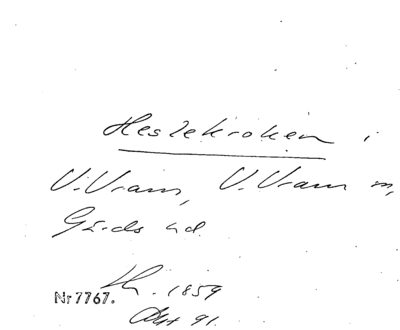 Heslekroken i
V. Vram, V. Vram sn,
Gärds hd.
Nr 7767. 1859
Akt 91.